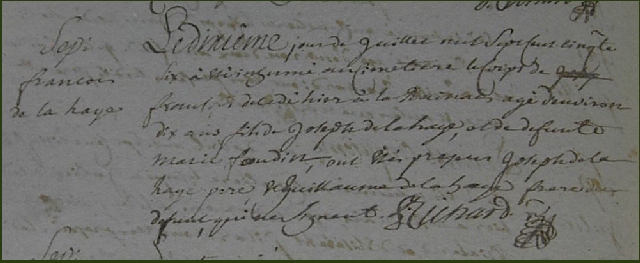 Sepi
françois
de la haye
Ledixième jour de Juillet mil Sept Cent cinqte
six a été inhumé au cimetiere le corps de
françois decede hier a la agé denviron
dix ans fils de Joseph delahaye, et de defunte
marie ont étés presens Joseph dela
haye pere, & Guillaume de la haye frere du
defunt, qui ne Signent. Richard
Sepi